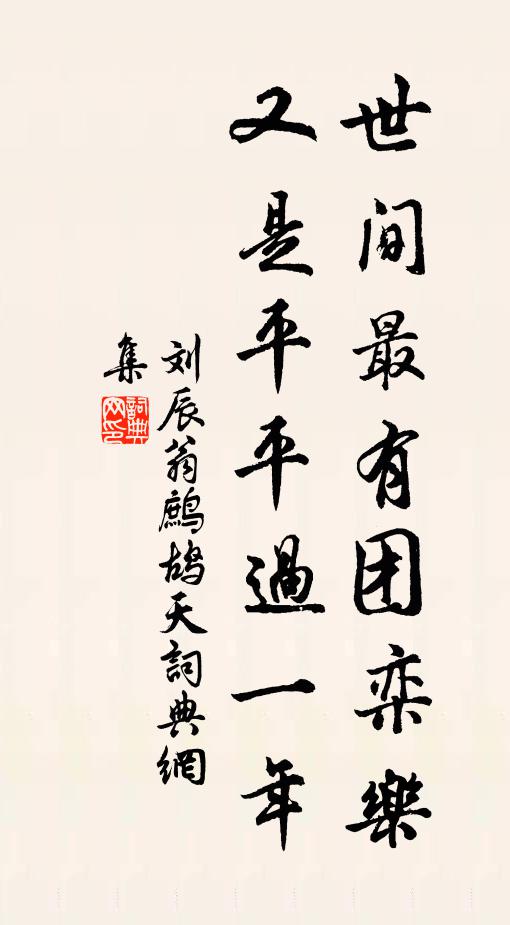 世间最有团栾樂
又是平平過一年
刘辰翁鹧鸪天詞典網
集
詞典网印